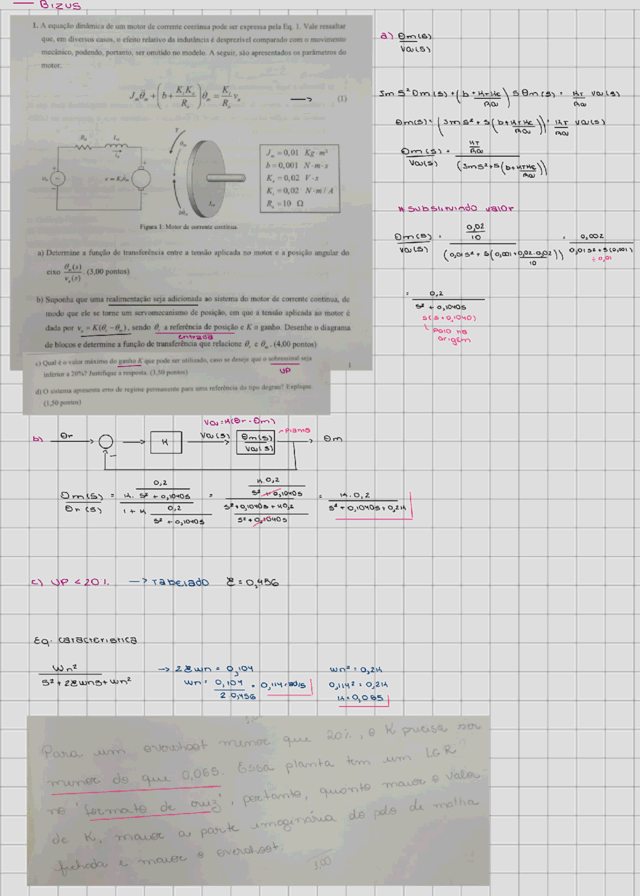 Bizus
1. A equação dinâmica de um motor de corrente contínua pode ser expressa pela Eq. 1. Vale ressaltar
que, em diversos casos, o efeito relativo da indutância é desprezível comparado com o movimento
mecânico, podendo, portanto, ser omitido no modelo. A seguir, são apresentados os parâmetros do
motor:
J_m θ̈_m + (b + K_t K_e / R_a) θ̇_m = K_t / R_a v_a (1)
J_m = 0,01 Kg·m²
b = 0,001 N·m·s
K_e = 0,02 V·s
K_t = 0,02 N·m/A
R_a = 10 Ω
Figura 1: Motor de corrente contínua.
a) Determine a função de transferência entre a tensão aplicada no motor e a posição angular do
eixo θ_m(s)/v_a(s). (3,00 pontos)
b) Suponha que uma realimentação seja adicionada ao sistema do motor de corrente contínua, de
modo que ele se torne um servomecanismo de posição, em que a tensão aplicada ao motor é
dada por v_a = K(θ_r − θ_m), sendo θ_r a referência de posição e K o ganho. Desenhe o diagrama
entrada
de blocos e determine a função de transferência que relacione θ_r e θ_m. (4,00 pontos)
c) Qual é o valor máximo do ganho K que pode ser utilizado, caso se deseje que o sobressinal seja
inferior a 20%? Justifique a resposta. (1,50 pontos)
UP
d) O sistema apresenta erro de regime permanente para uma referência do tipo degrau? Explique.
(1,50 pontos)
a) Θm(s)/Va(s)
Jm s² Θm(s) + (b + KtKe/Ra) s Θm(s) = Kt/Ra Va(s)
Θm(s) · (Jm s² + s (b + KtKe/Ra)) = Kt/Ra Va(s)
Θm(s)/Va(s) = (Kt/Ra)/(Jm s² + s (b + KtKe/Ra))
# Substituindo valor
Θm(s)/Va(s) = (0,02/10)/(0,01s² + s(0,001 + 0,02·0,02/10)) = 0,002/(0,01s² + s(0,001)
÷0,01
= 0,2/(s² + 0,1040s)
s(s+0,1040)
Polo na
origem
b) Θr
K
Va = K(Θr - Θm)
Va(s)
Θm(s)/Va(s)
Θm
Θm(s)/Θr(s) = (K · 0,2/(s² + 0,1040s))/(1 + K 0,2/(s² + 0,1040s)) = (K·0,2/(s² + 0,1040s))/((s² + 0,1040s + K0,2)/(s² + 0,1040s)) = K·0,2/(s² + 0,1040s + 0,2K)
c) UP < 20% → Tabelado ξ = 0,456
Eq. característica
Wn²/(s² + 2ξWns + Wn²)
→ 2ξWn = 0,104
Wn = 0,104/(2·0,456) = 0,114
Wn² = 0,2K
0,114² = 0,2K
K = 0,065
Para um overshoot menor que 20%, o K precisa ser
menor do que 0,065. Essa planta tem um LGR
no "formato de cruz", portanto, quanto maior o valor
de K, maior a parte imaginária do polo de malha
fechada e maior o overshoot.